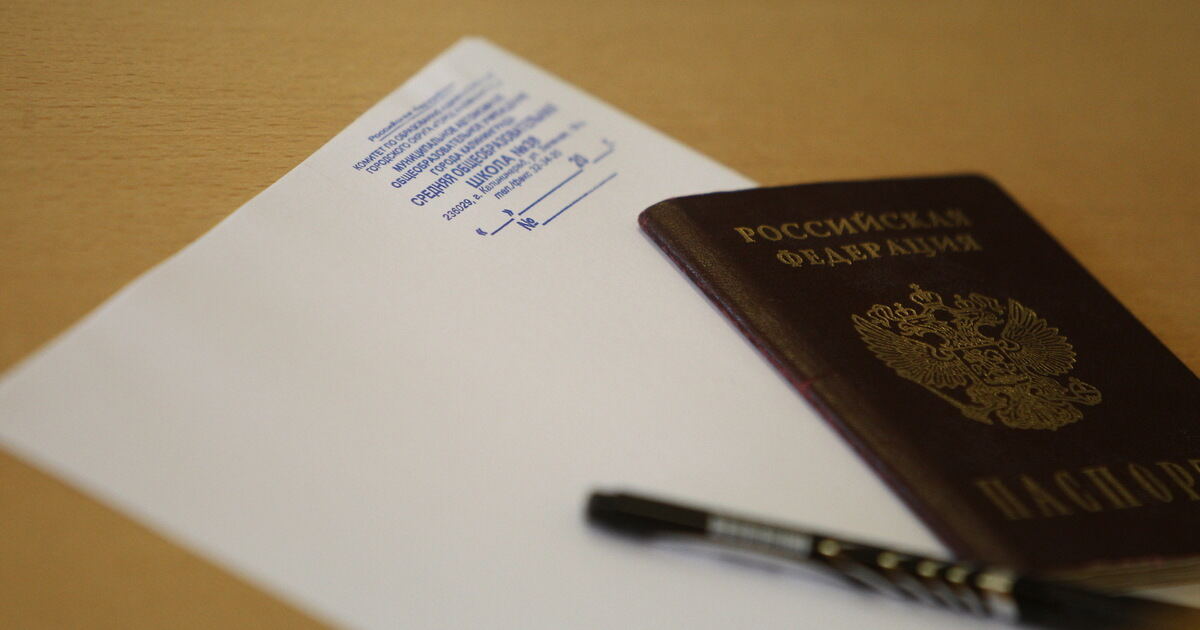 Российская Федерация
КОМИТЕТ ПО ОБРАЗОВАНИЮ
ГОРОДСКОГО ОКРУГА
МУНИЦИПАЛЬНОЕ АВТОНОМНОЕ
ОБЩЕОБРАЗОВАТЕЛЬНОЕ УЧРЕЖДЕНИЕ
ГОРОДА КАЛИНИНГРАДА
СРЕДНЯЯ ОБЩЕОБРАЗОВАТЕЛЬНАЯ
ШКОЛА №38
236029, г. Калининград, ул.
тел./факс
«__»________20__г.
№________
РОССИЙСКАЯ
ФЕДЕРАЦИЯ
ПАСПОРТ